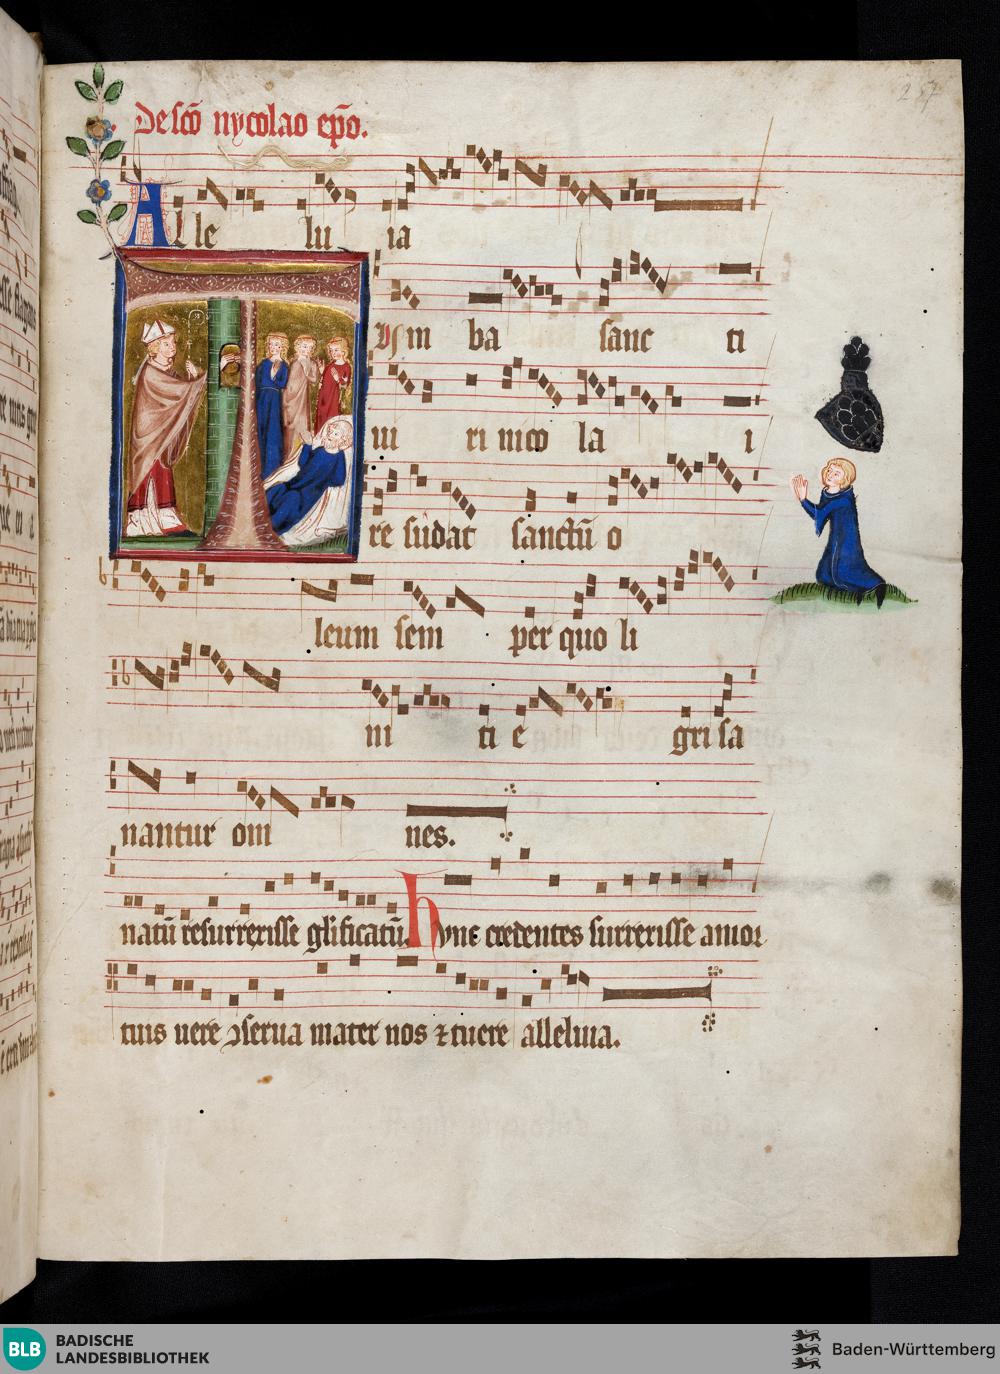 De sc̄o nycolao ep̄o.
257
Alle lu ia
V͛m ba sanc ti
ui ri nico la i
re sudat sanctū o
leum sem per quo li
ni ti e gri sa
nantur om nes.
natū resurrexisse gl̄ificatū. hunc credentes surrexisse amor
tuis uere ꝯserua mater nos ⁊ tuere alleluia.
BLB BADISCHE LANDESBIBLIOTHEK
Baden-Württemberg